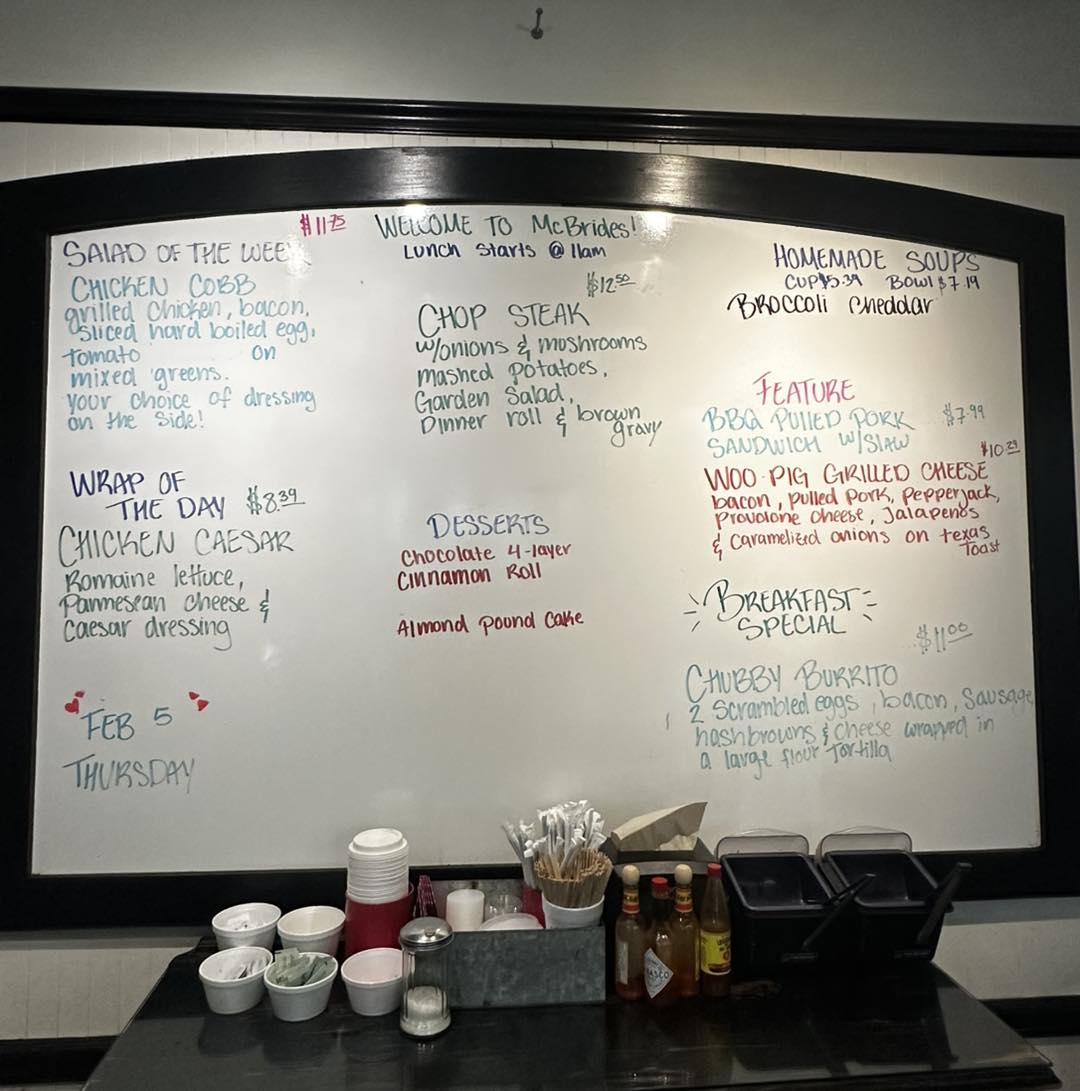 $11.75
SALAD OF THE WEE
CHICKEN COBB
grilled chicken, bacon,
sliced hard boiled egg,
tomato on
mixed greens.
your choice of dressing
on the side!
WRAP OF
THE DAY $8.39
CHICKEN CAESAR
Romaine lettuce,
Parmesean cheese &
Caesar dressing
FEB 5
THURSDAY
WELCOME TO McBrides!
Lunch starts @ 11am
$12.50
CHOP STEAK
w/onions & moshrooms
mashed potatoes,
Garden Salad,
Dinner roll & brown
gravy
DESSERTS
Chocolate 4-layer
Cinnamon Roll
Almond Pound Cake
HOMEMADE SOUPS
CUP $5.39 BOWl $7.19
Broccoli Cheddar
FEATURE
BBQ PULLED PORK $7.99
SANDWICH W/SLAW
$10.29
WOO-PIG GRILLED CHEESE
bacon, pulled pork, Pepperjack,
Provolone cheese, Jalapenos
& Caramelized onions on texas
Toast
BREAKFAST
SPECIAL
$11.00
CHUBBY BURRITO
2 Scrambled eggs, bacon, Sausage
hashbrowns & cheese wrapped in
a large flour tortilla